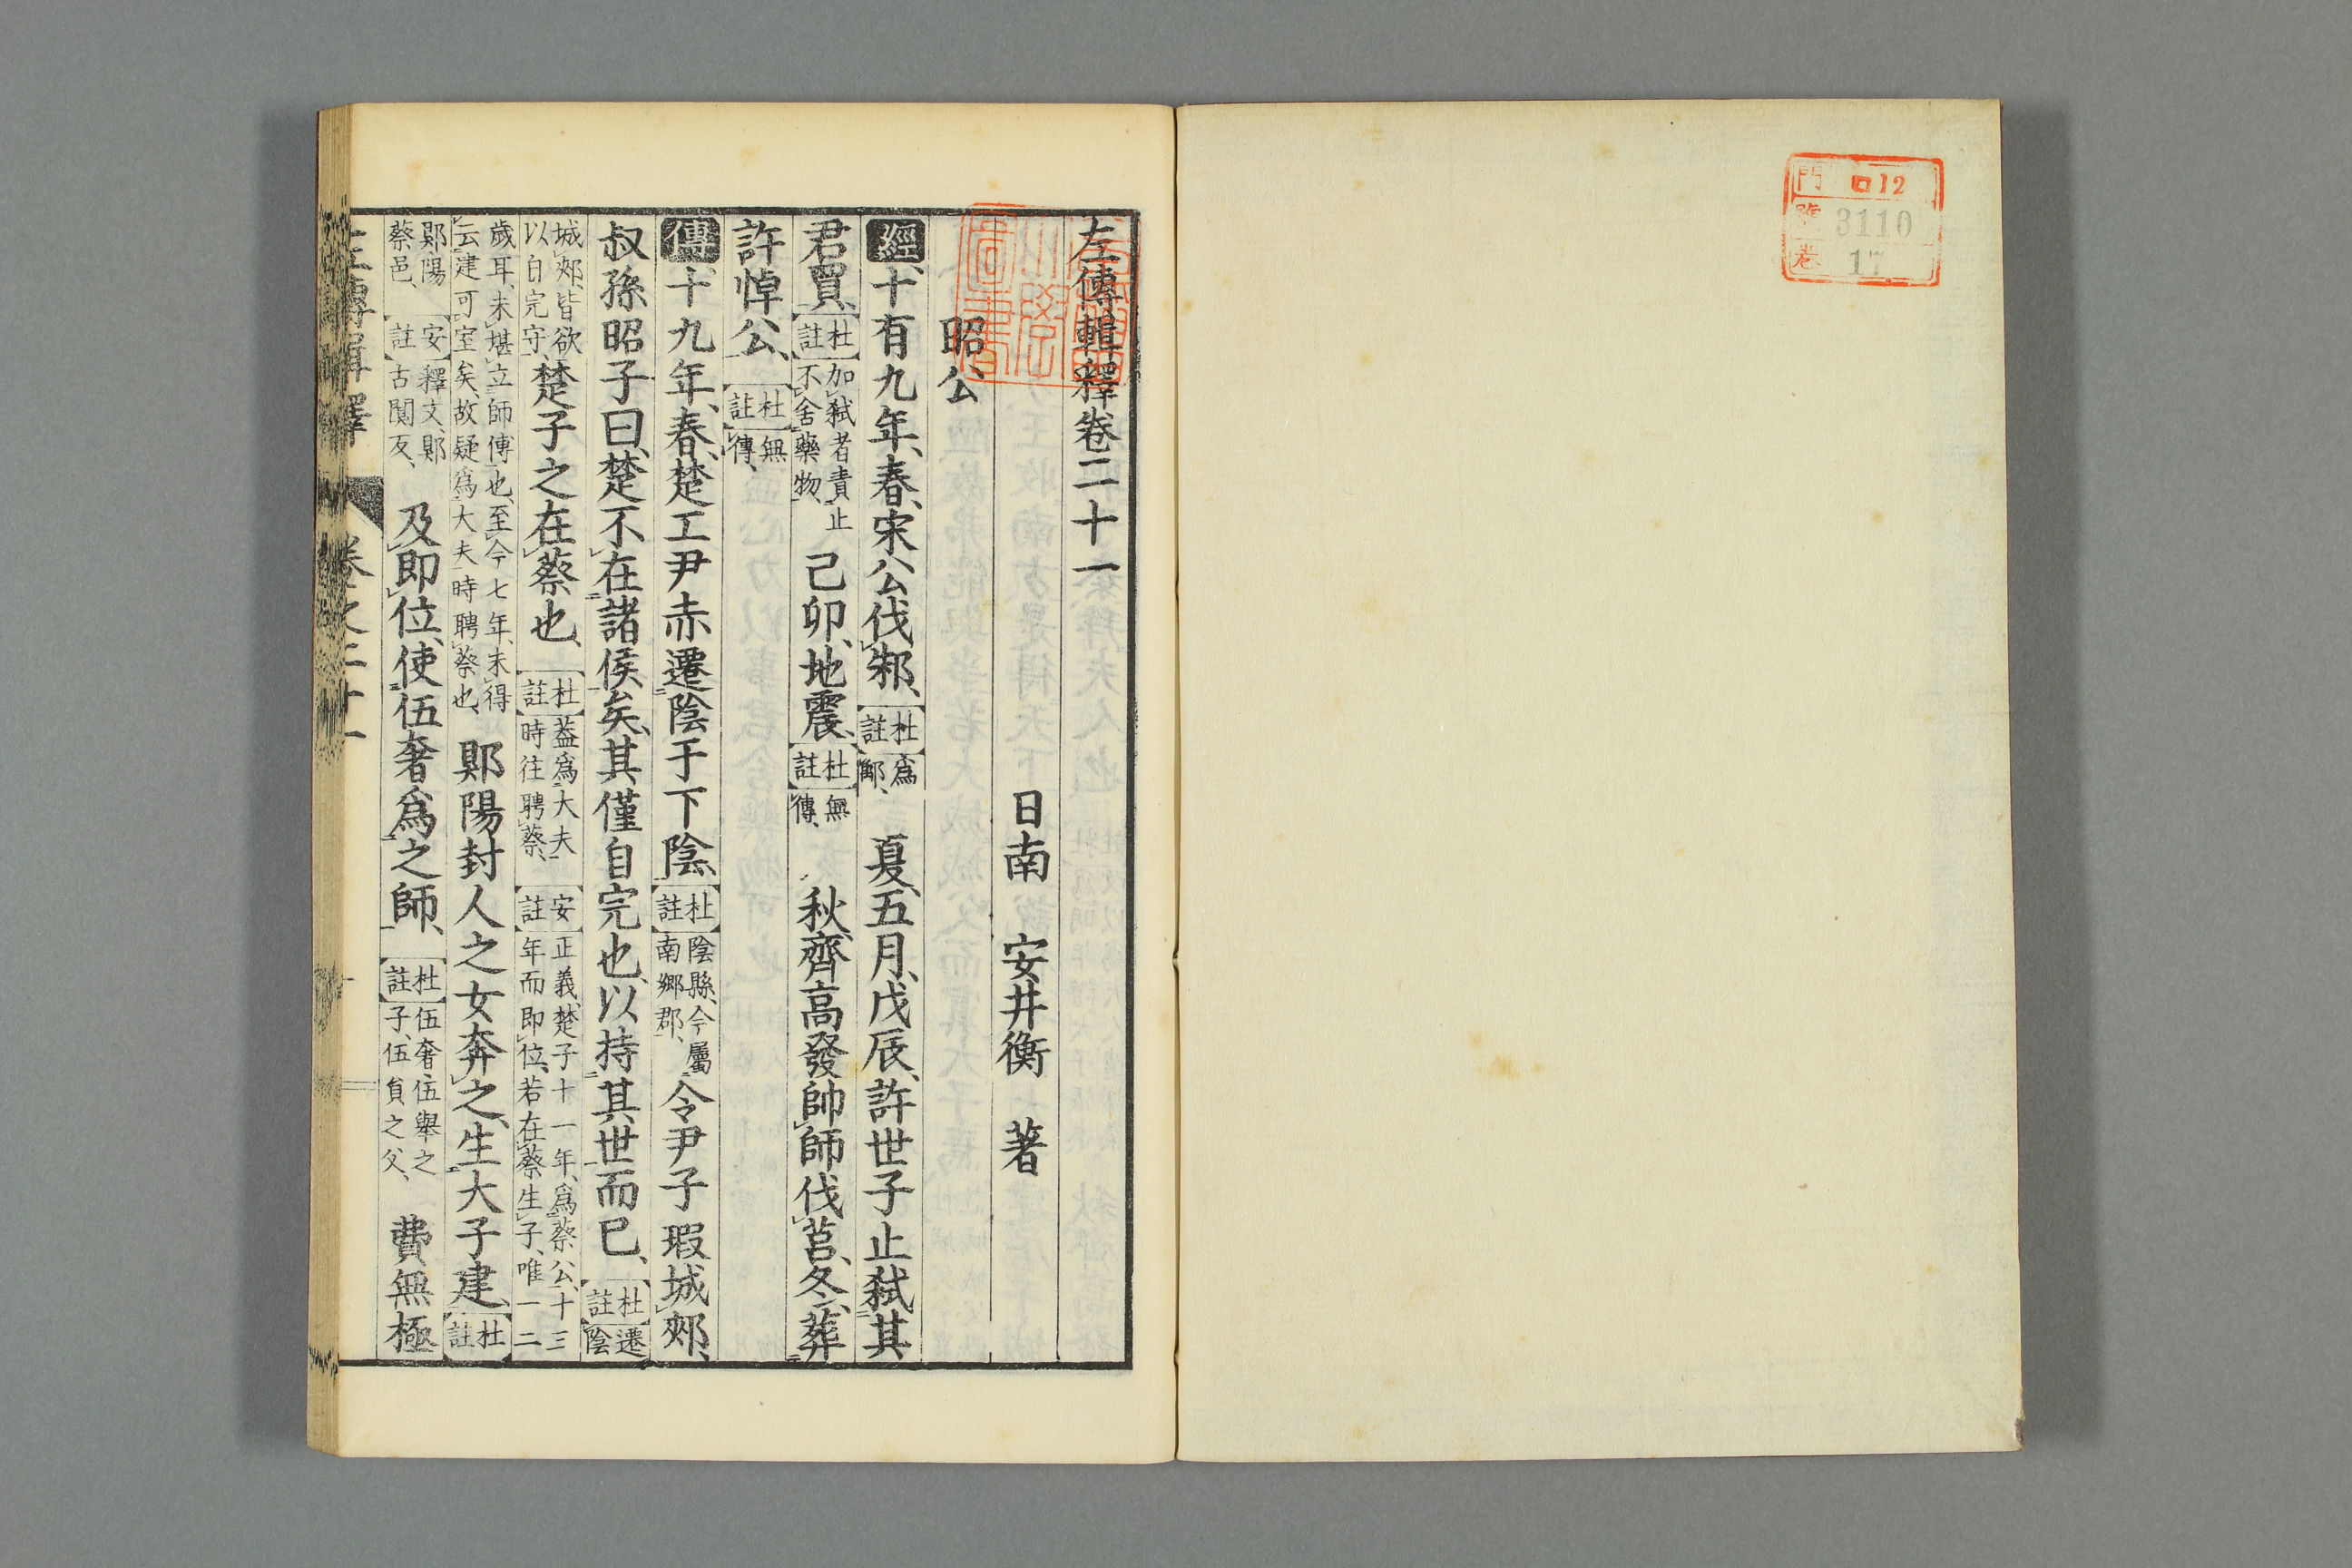 門 ロ12
號 3110
卷 17
左傳輯釋卷二十一
日南 安井衡 著
昭公
經十有九年、春、宋公伐邾、杜註爲鄅、夏、五月、戊辰、許世子止弑其
君買、杜註加弑者責止不舍藥物、己卯、地震、杜註無傳、秋、齊高發帥師伐莒、冬、葬
許悼公、杜註無傳、
傳十九年、春、楚工尹赤遷陰于下陰、杜註陰縣、今屬南鄉郡、令尹子瑕城郟、
叔孫昭子曰、楚不在諸侯矣、其僅自完也、以持其世而已、杜註遷陰
城郟、皆欲以自完守、楚子之在蔡也、杜註蓋爲大夫時往聘蔡、安註正義、楚子十一年、爲蔡公、十三年而即位、若在蔡生子、唯一二
歲耳、未堪立師傅也、至今七年、未得云建可室矣、故疑爲大夫時聘蔡也、郹陽封人之女奔之、生大子建、杜註
郹陽蔡邑、安註釋文、郹古闃反、及即位、使伍奢爲之師、杜註伍奢伍舉之子、伍員之父、費無極
左傳輯釋 卷之二十一